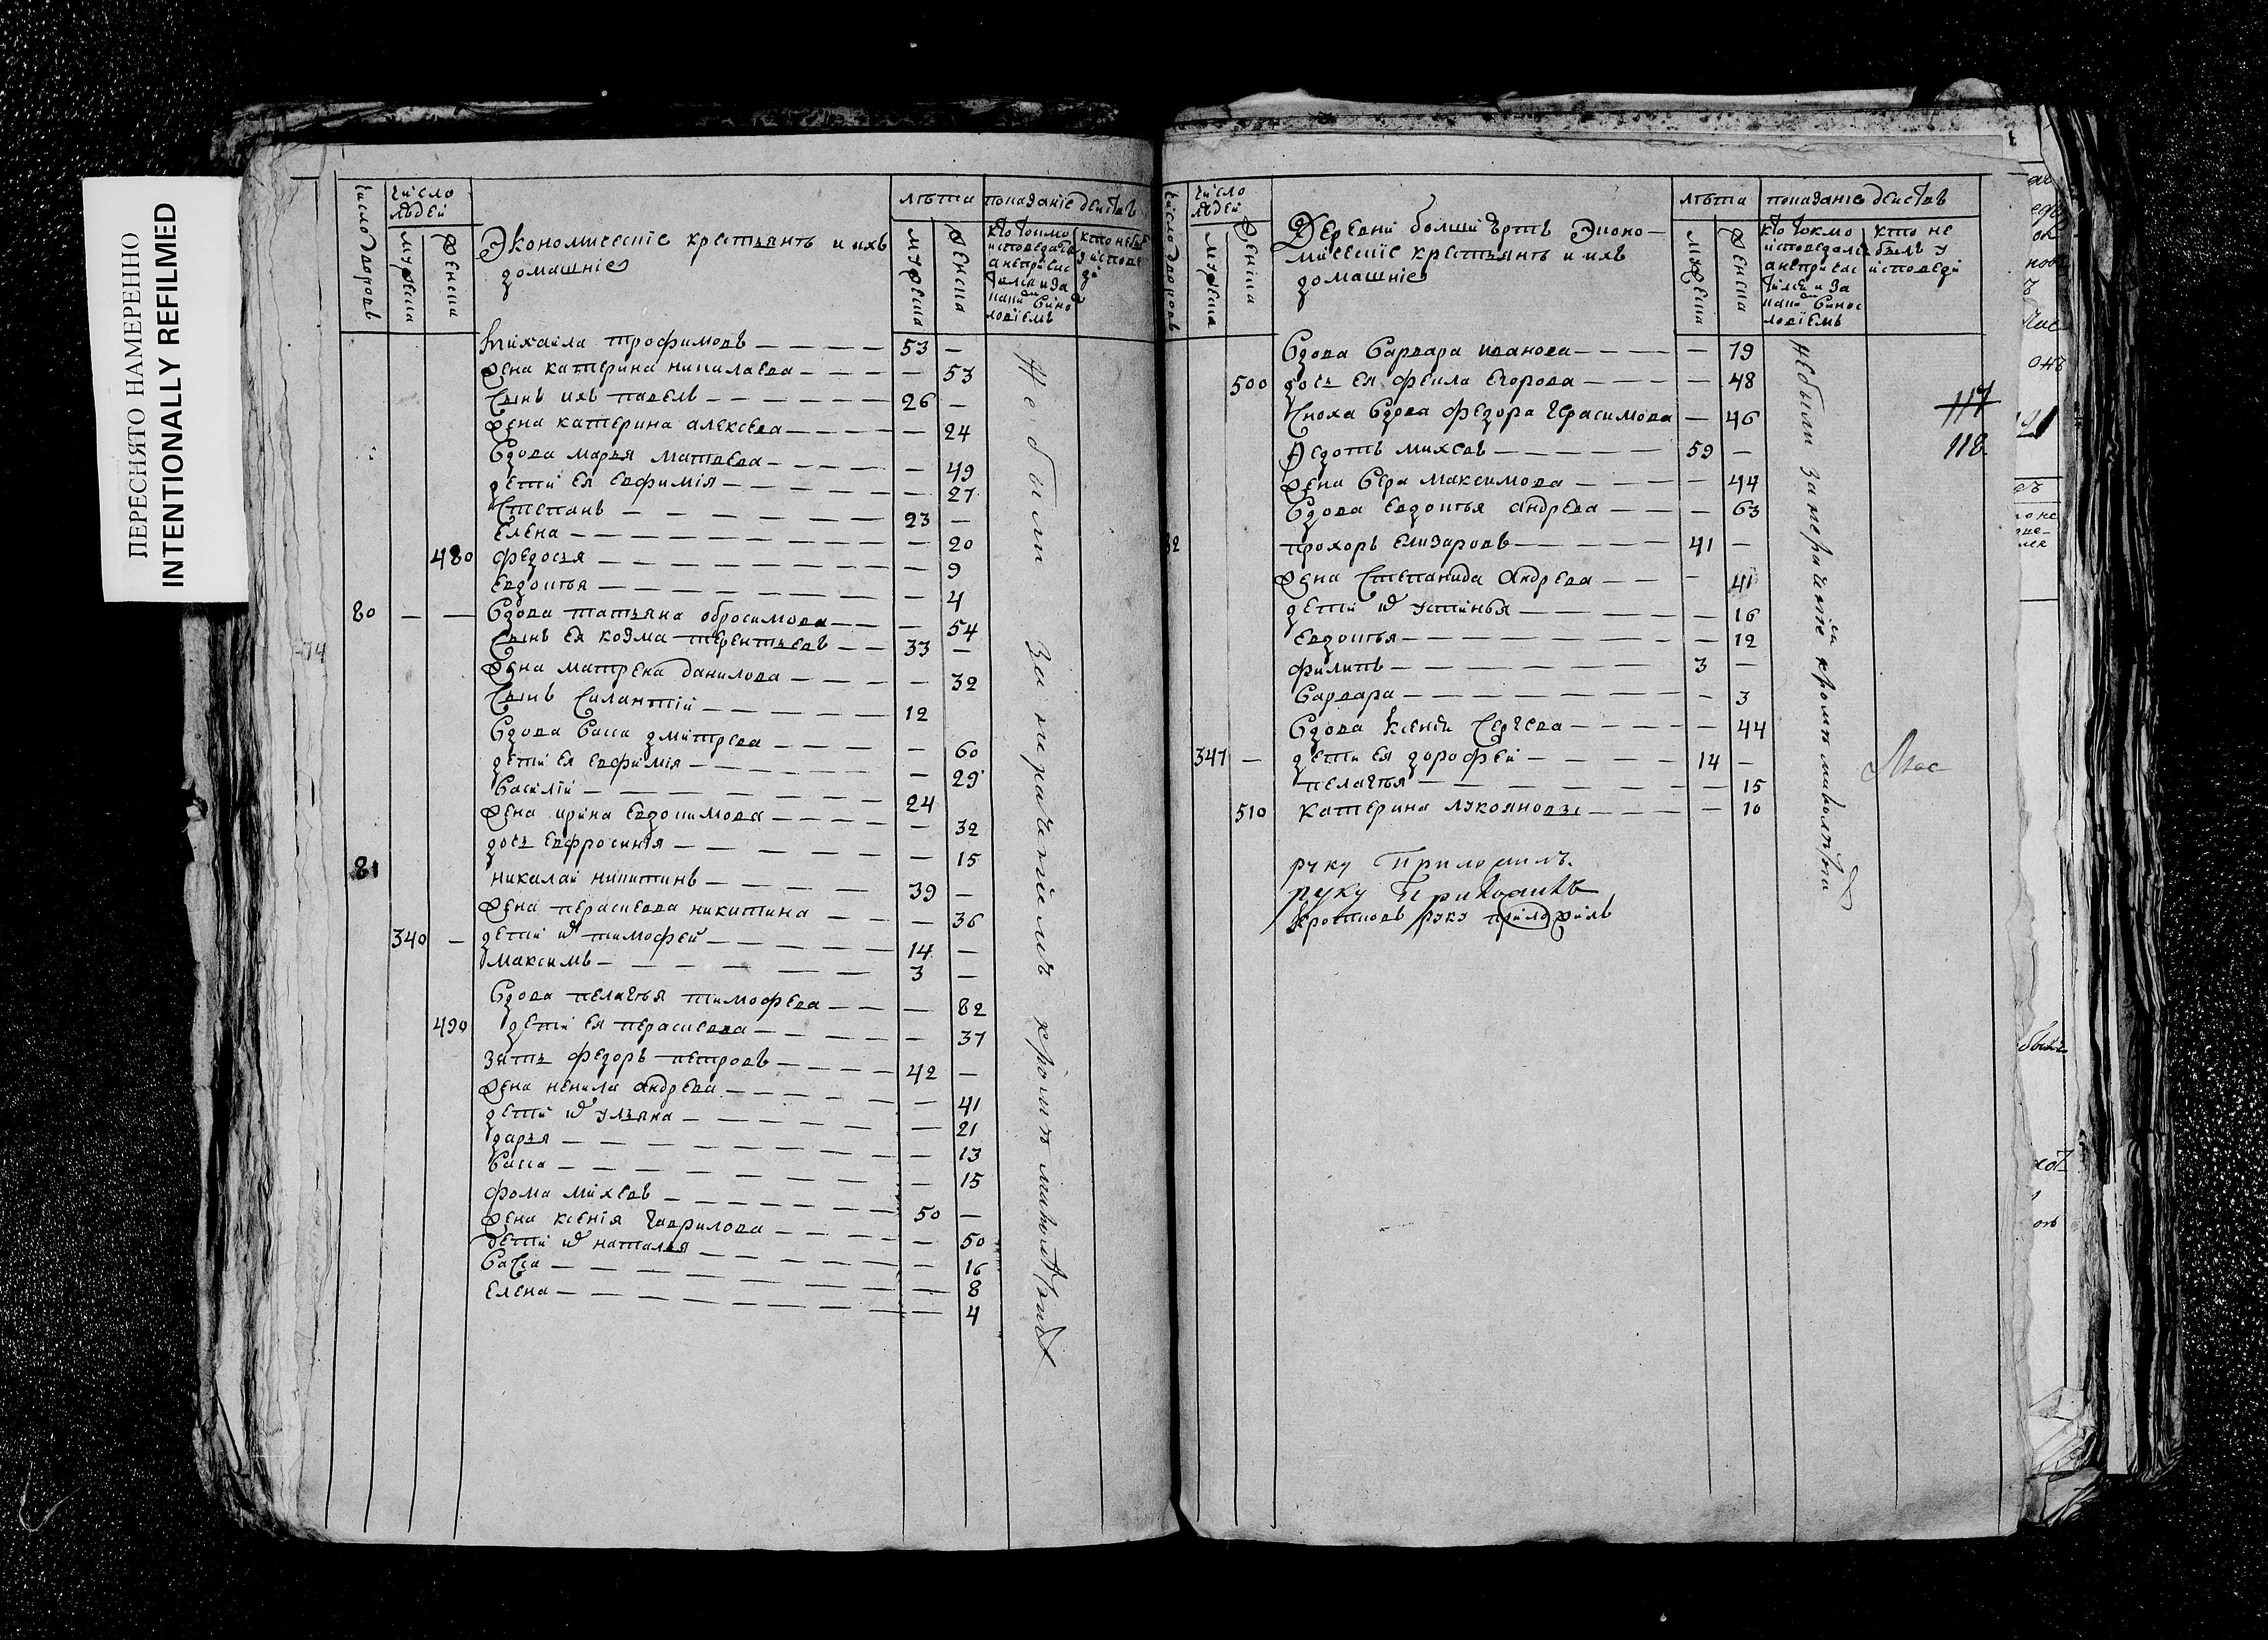 ПЕРЕСНЯТО НАМЕРЕННО
INTENTIONALLY REFILMED
число дворовъ
число людей
мужеска
женска
Экономическіе крестьянъ и ихъ
домашніе
лѣта
мужеска
женска
показаніе действъ
кто токмо
исповедался
а непричас
тился и за
каки ви
но
словїемъ
кто не былъ
у исповеди
михаила трофимовъ 53 —
жена катерина николаева — 53
сынъ ихъ павелъ 26 —
жена катерина алексева — 24
вдова марья матвева — 49
дети ея евфимія — 27
степанъ 23 —
елена — 20
480 федосья — 9
евдотья — 4
80 — — вдова татьяна обросимова — 54
сынъ ея козма терентьевъ 33 —
жена матрена данилова — 32
сынъ силантій 12
вдова васса дмитрева — 60
дети ея евфимія — 29
василій 24
жена ирина евдокимова — 32
дочь евфросинія — 15
81 николай никитинъ 39 —
жена пераскева никитина — 36
340 — дети их тимофей 14 —
максимъ 3 —
вдова пелагья тимофева — 82
490 дети ея пераскева — 37
зять федоръ петровъ 42 —
жена ненила андрева — 41
дети их ульяна — 21
дарья — 13
васса — 15
фома михевъ 50 —
жена ксенія гаврилова — 50
дети их наталья — 16
васса — 8
елена — 4
Не были за нерачениемъ кроме малолетныхъ
74
число дворовъ
число людей
мужеска
женска
Деревни болши ертъ Эконо-
мическіе крестьянъ и ихъ
домашніе
лѣта
мужеска
женска
показаніе действъ
кто токмо
исповедался
а непричас
тился и за
каки ви
нос
ловїемъ
кто не
былъ у
исповеди
вдова варвара иванова — 79
500 дочь ея фекла егорова — 48
сноха вдова федора герасимова — 46
федотъ михевъ 59 —
жена вера максимова — 44
вдова евдотья андрева — 63
82 прохоръ елизаровъ 41 —
жена степанида андрева — 41
дети их устинья — 16
евдотья — 12
филипъ 3 —
варвара — 3
вдова ксенія сергева — 44
347 — дети ея дорофей 14 —
пелагья — 15
510 катерина лукоянова — 10
не были за нерачениемъ кроме малолетныхъ
117
118
руку приложилъ.
руку приложилъ
руку приложилъ